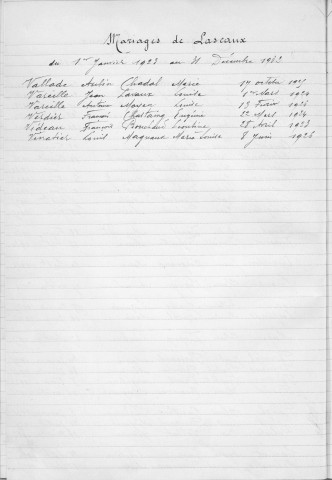 Mariages de Lascaux
du 1er Janvier 1923 au 31 Décembre 1932
Vallade Aubin Chadal Marie 17 octobre
Vareille Jean Lavaux Louise 1er Mars 1924
Vareille Antoine Mayen Louise 13 Février 1926
Verdier François Chastaing Eugénie 22 Mars 1924
Videau François Léontine 28 Avril 1923
Vinatier Louis Magnaux Marie Louise 8 Juin 1926